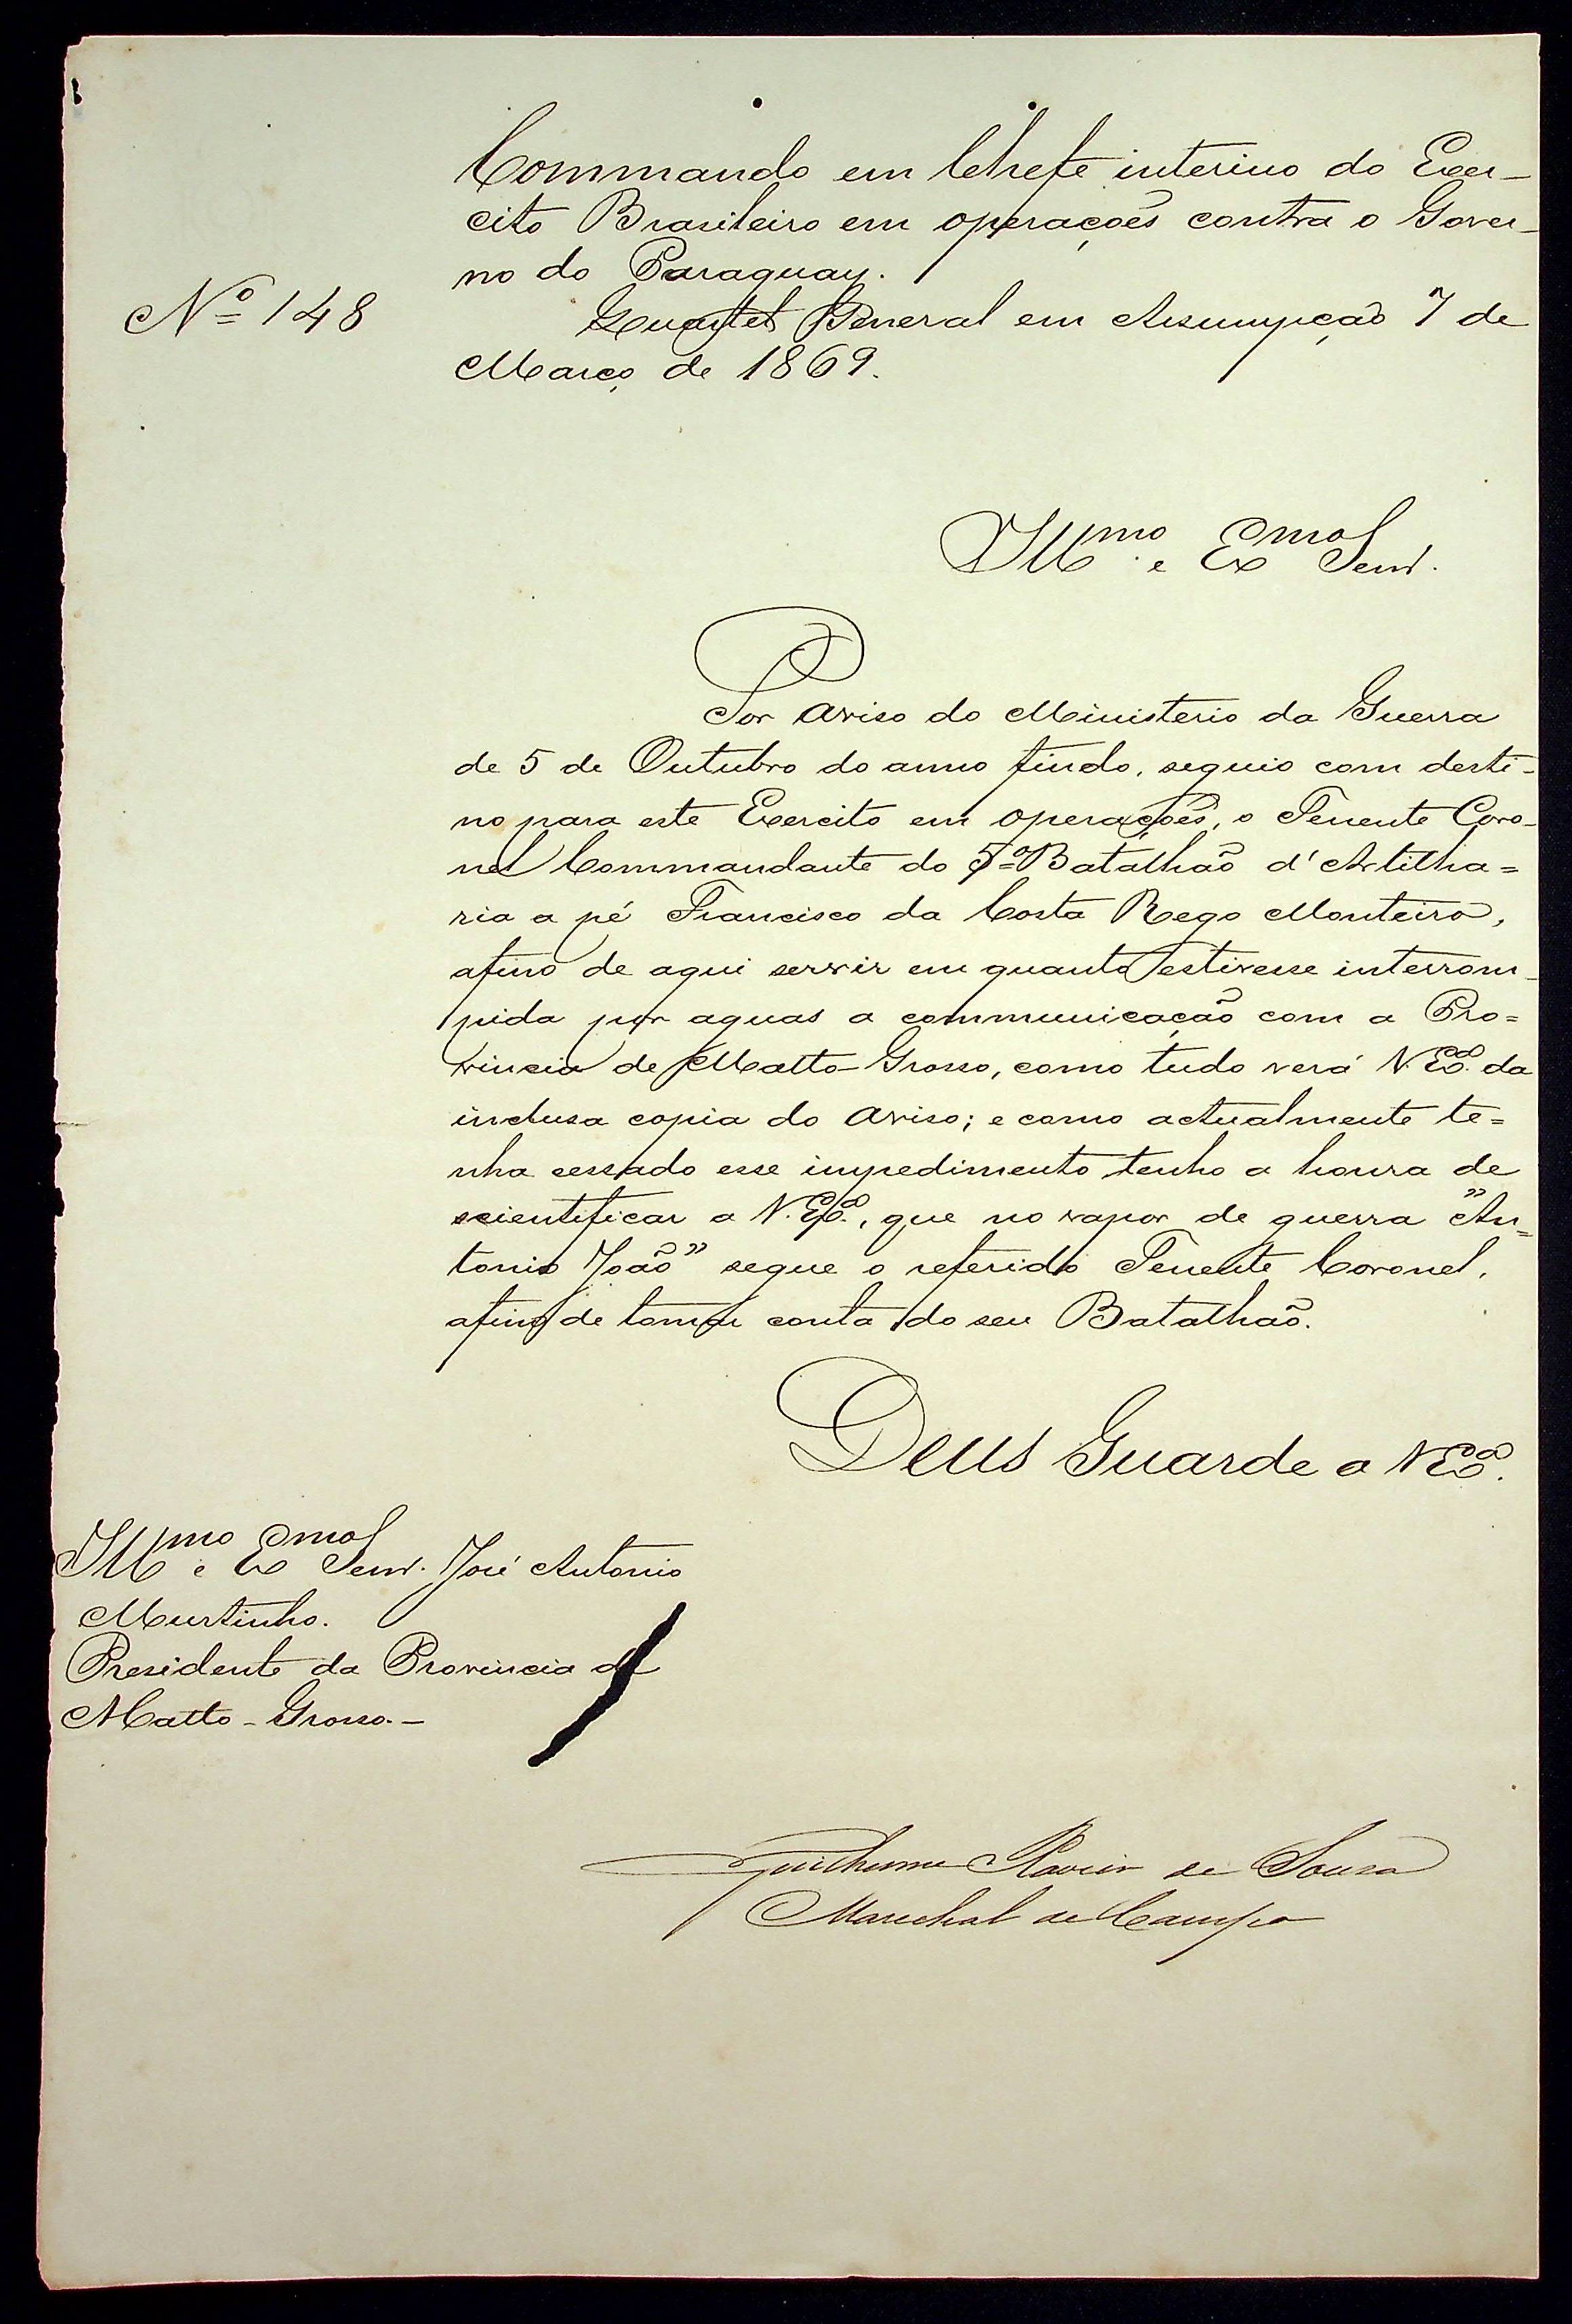 Commando em Chefe interino do Exer-
cito Brasileiro em operações contra o Gover-
no do Paraguay.
Nº 148
Quartel General em Assumpção 7 de
Março de 1869.
Illmo. e Exmo Senr.
Por aviso do Ministerio da Guerra
de 5 de Outubro do anno findo, seguio com desti-
no para este Exercito em operações, o Tenente Coro-
nel Commandante do 5º Batalhão d'Artilha=
ria a pé Francisco da Costa Rego Monteiro,
afim de aqui servir em quanto estivesse interrom-
pida por aguas a communicação com a Pro=
vincia de Matto-Grosso, como tudo verá V. Exª. da
inclusa copia do aviso; e como actualmente te=
nha cessado esse impedimento tenho a honra de
scientificar a V. Exª., que no vapor de guerra "An=
tonio João" segue o referido Tenente Coronel,
afim de tomar conta do seu Batalhão.
Deus Guarde a V Exª.
Illmo e Exmo Senr. José Antonio
Murtinho.
Presidente da Provincia de
Matto-Grosso.-
Guilherme Xavier de Souza
Marechal de Campo